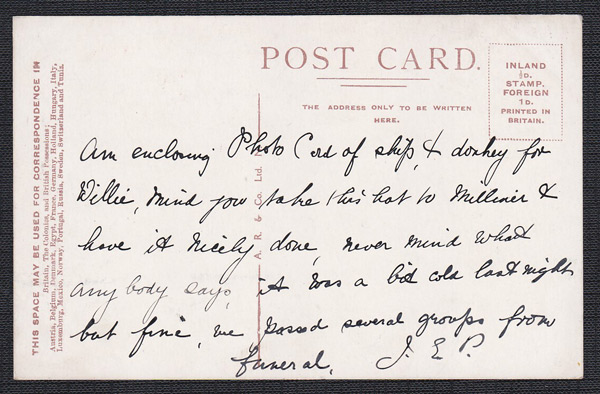 POST CARD.
THE ADDRESS ONLY TO BE WRITTEN
HERE.
INLAND
½D.
STAMP.
FOREIGN
1D.
PRINTED IN
BRITAIN.
THIS SPACE MAY BE USED FOR CORRESPONDENCE IN
Britain, The Colonies, and British Possessions;
Austria, Belgium, Denmark, Egypt, France, Germany, Holland, Hungary, Italy,
Luxemburg, Mexico, Norway, Portugal, Russia, Sweden, Switzerland and Tunis.
A. R. & Co. Ltd.
Am enclosing Photo Card of ship, & donkey for
Willie, mind you take this hat to Milliner &
have it nicely done, never mind what
any body says, it was a bit cold last night
but fine, we passed several groups from
funeral. J. E. P.